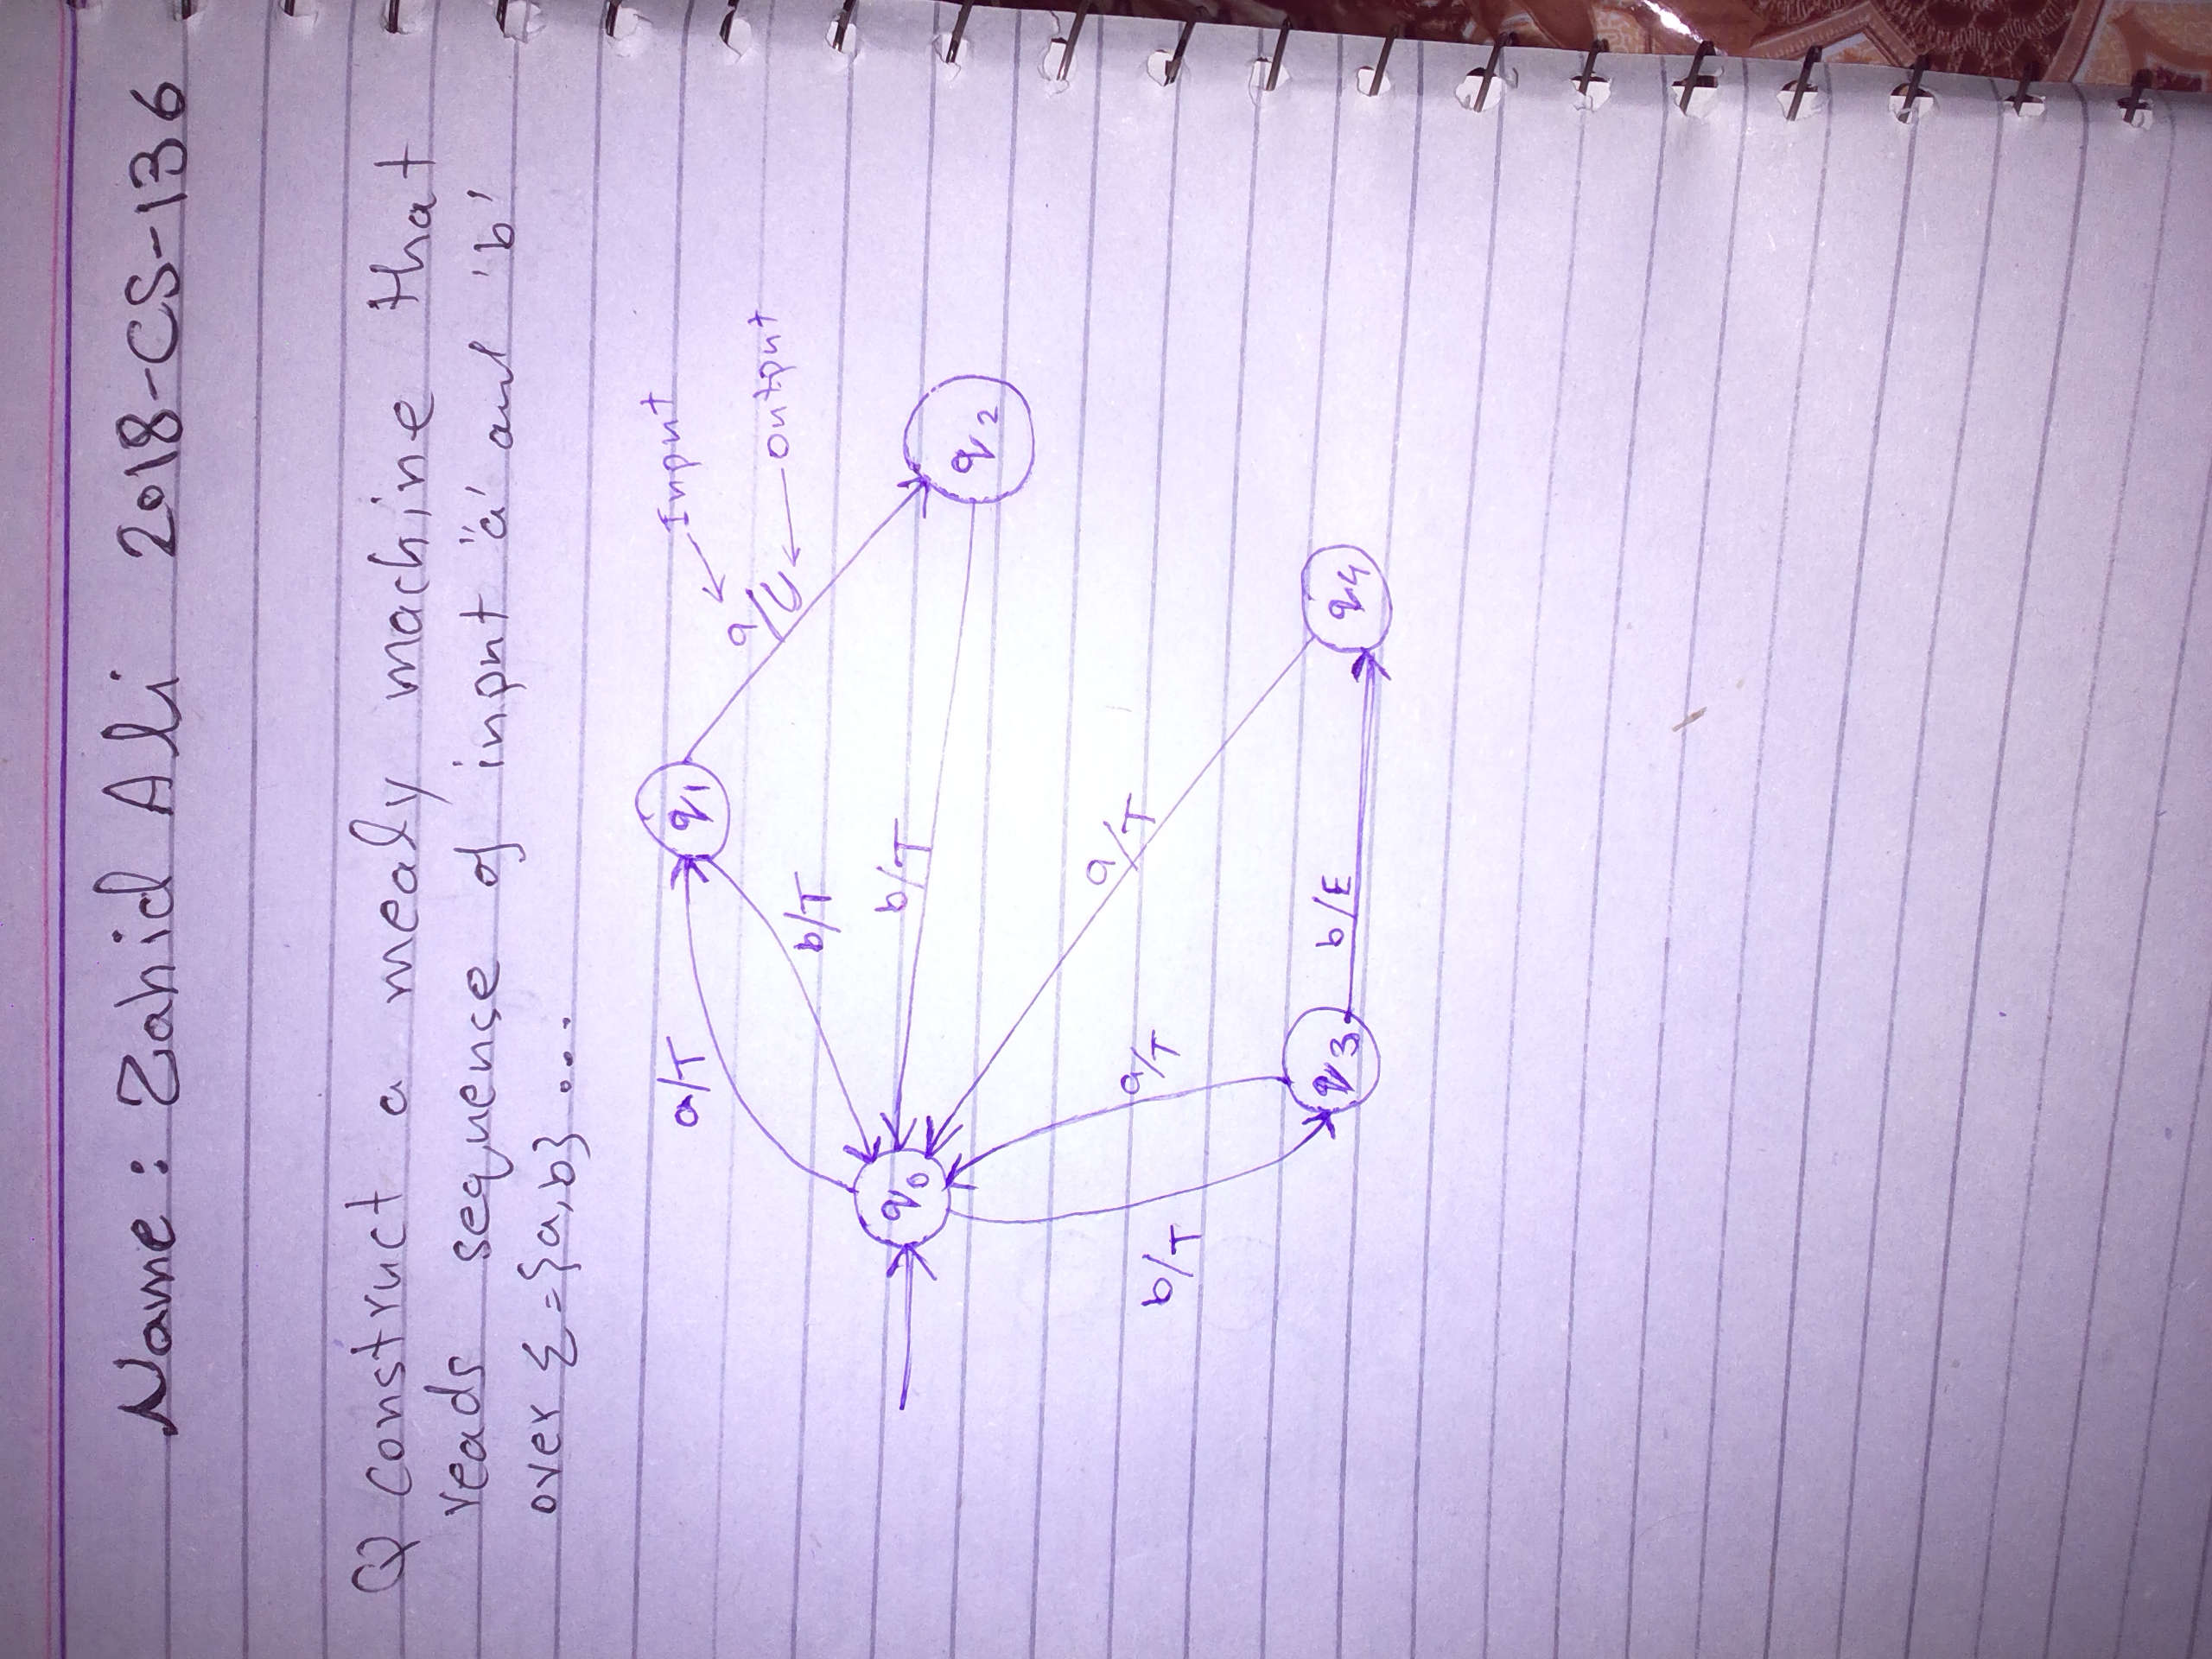 Name: Zahid Ali 2018-CS-136
Q construct a mealy machine that
reads sequense of input "a' and 'b'
over Σ={a,b} ...
a/T
q1
Input
a/U
output
b/T
q0
b/T
q2
a/T
a/T
b/T
q3
b/E
q4